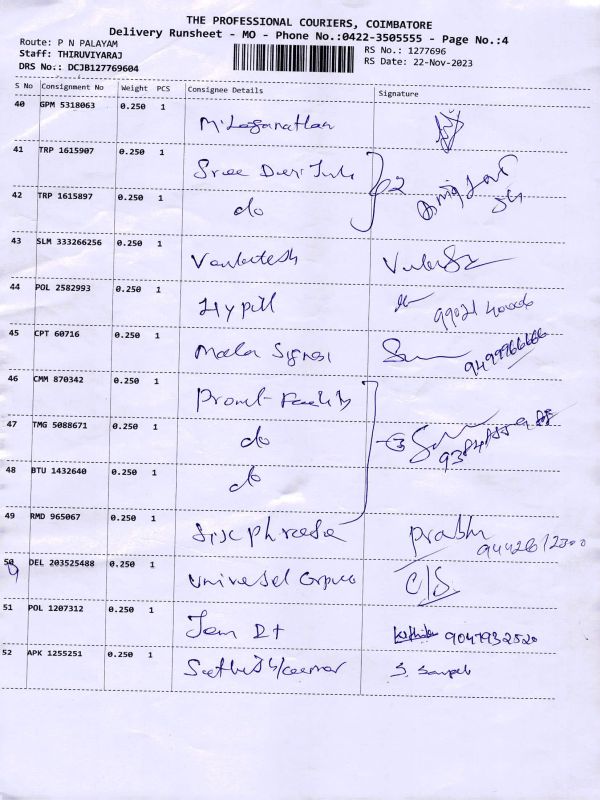 THE PROFESSIONAL COURIERS, COIMBATORE
Delivery Runsheet - MO - Phone No.:0422-3505555 - Page No.:4
Route: P N PALAYAM
RS No.: 1277696
Staff: THIRUVIYARAJ
RS Date: 22-Nov-2023
DRS No.: DCJB127769604
S No Consignment No Weight PCS Consignee Details Signature
40 GPM 5318063 0.250 1
M. Loganathan
41 TRP 1615907 0.250 1
Sree
42 TRP 1615897 0.250 1
do
43 SLM 333266256 0.250 1
Venkatesh
44 POL 2582993 0.250 1
45 CPT 60716 0.250 1
46 CMM 870342 0.250 1
47 TMG 5088671 0.250 1
do
48 BTU 1432640 0.250 1
do
49 RMD 965067 0.250 1
Prabhu
50 DEL 203525488 0.250 1
Universal
C/S
51 POL 1207312 0.250 1
9047932520
52 APK 1255251 0.250 1
Sathish Kumar